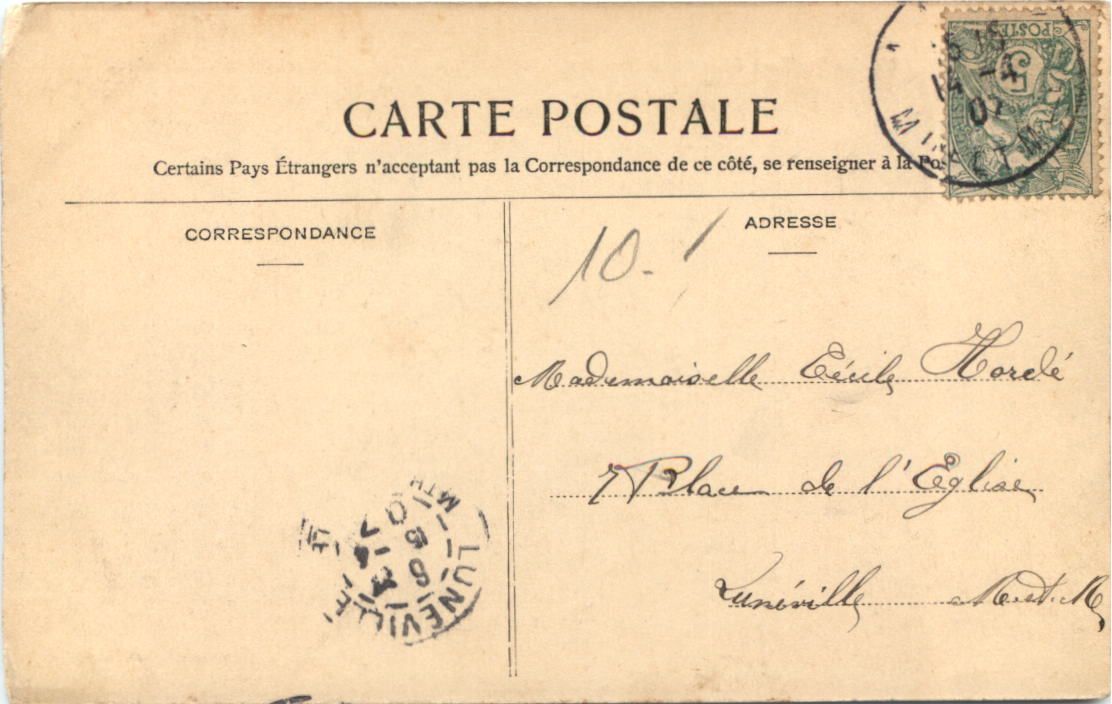 CARTE POSTALE
Certains Pays Étrangers n'acceptant pas la Correspondance de ce côté, se renseigner à la Pos
CORRESPONDANCE
ADRESSE
10.-
Mademoiselle Cécile Hordé
7 Place de l'Église
Lunéville M.et.M.
POSTES
5
14 -4
07
M
ET M
LUNEVILLE